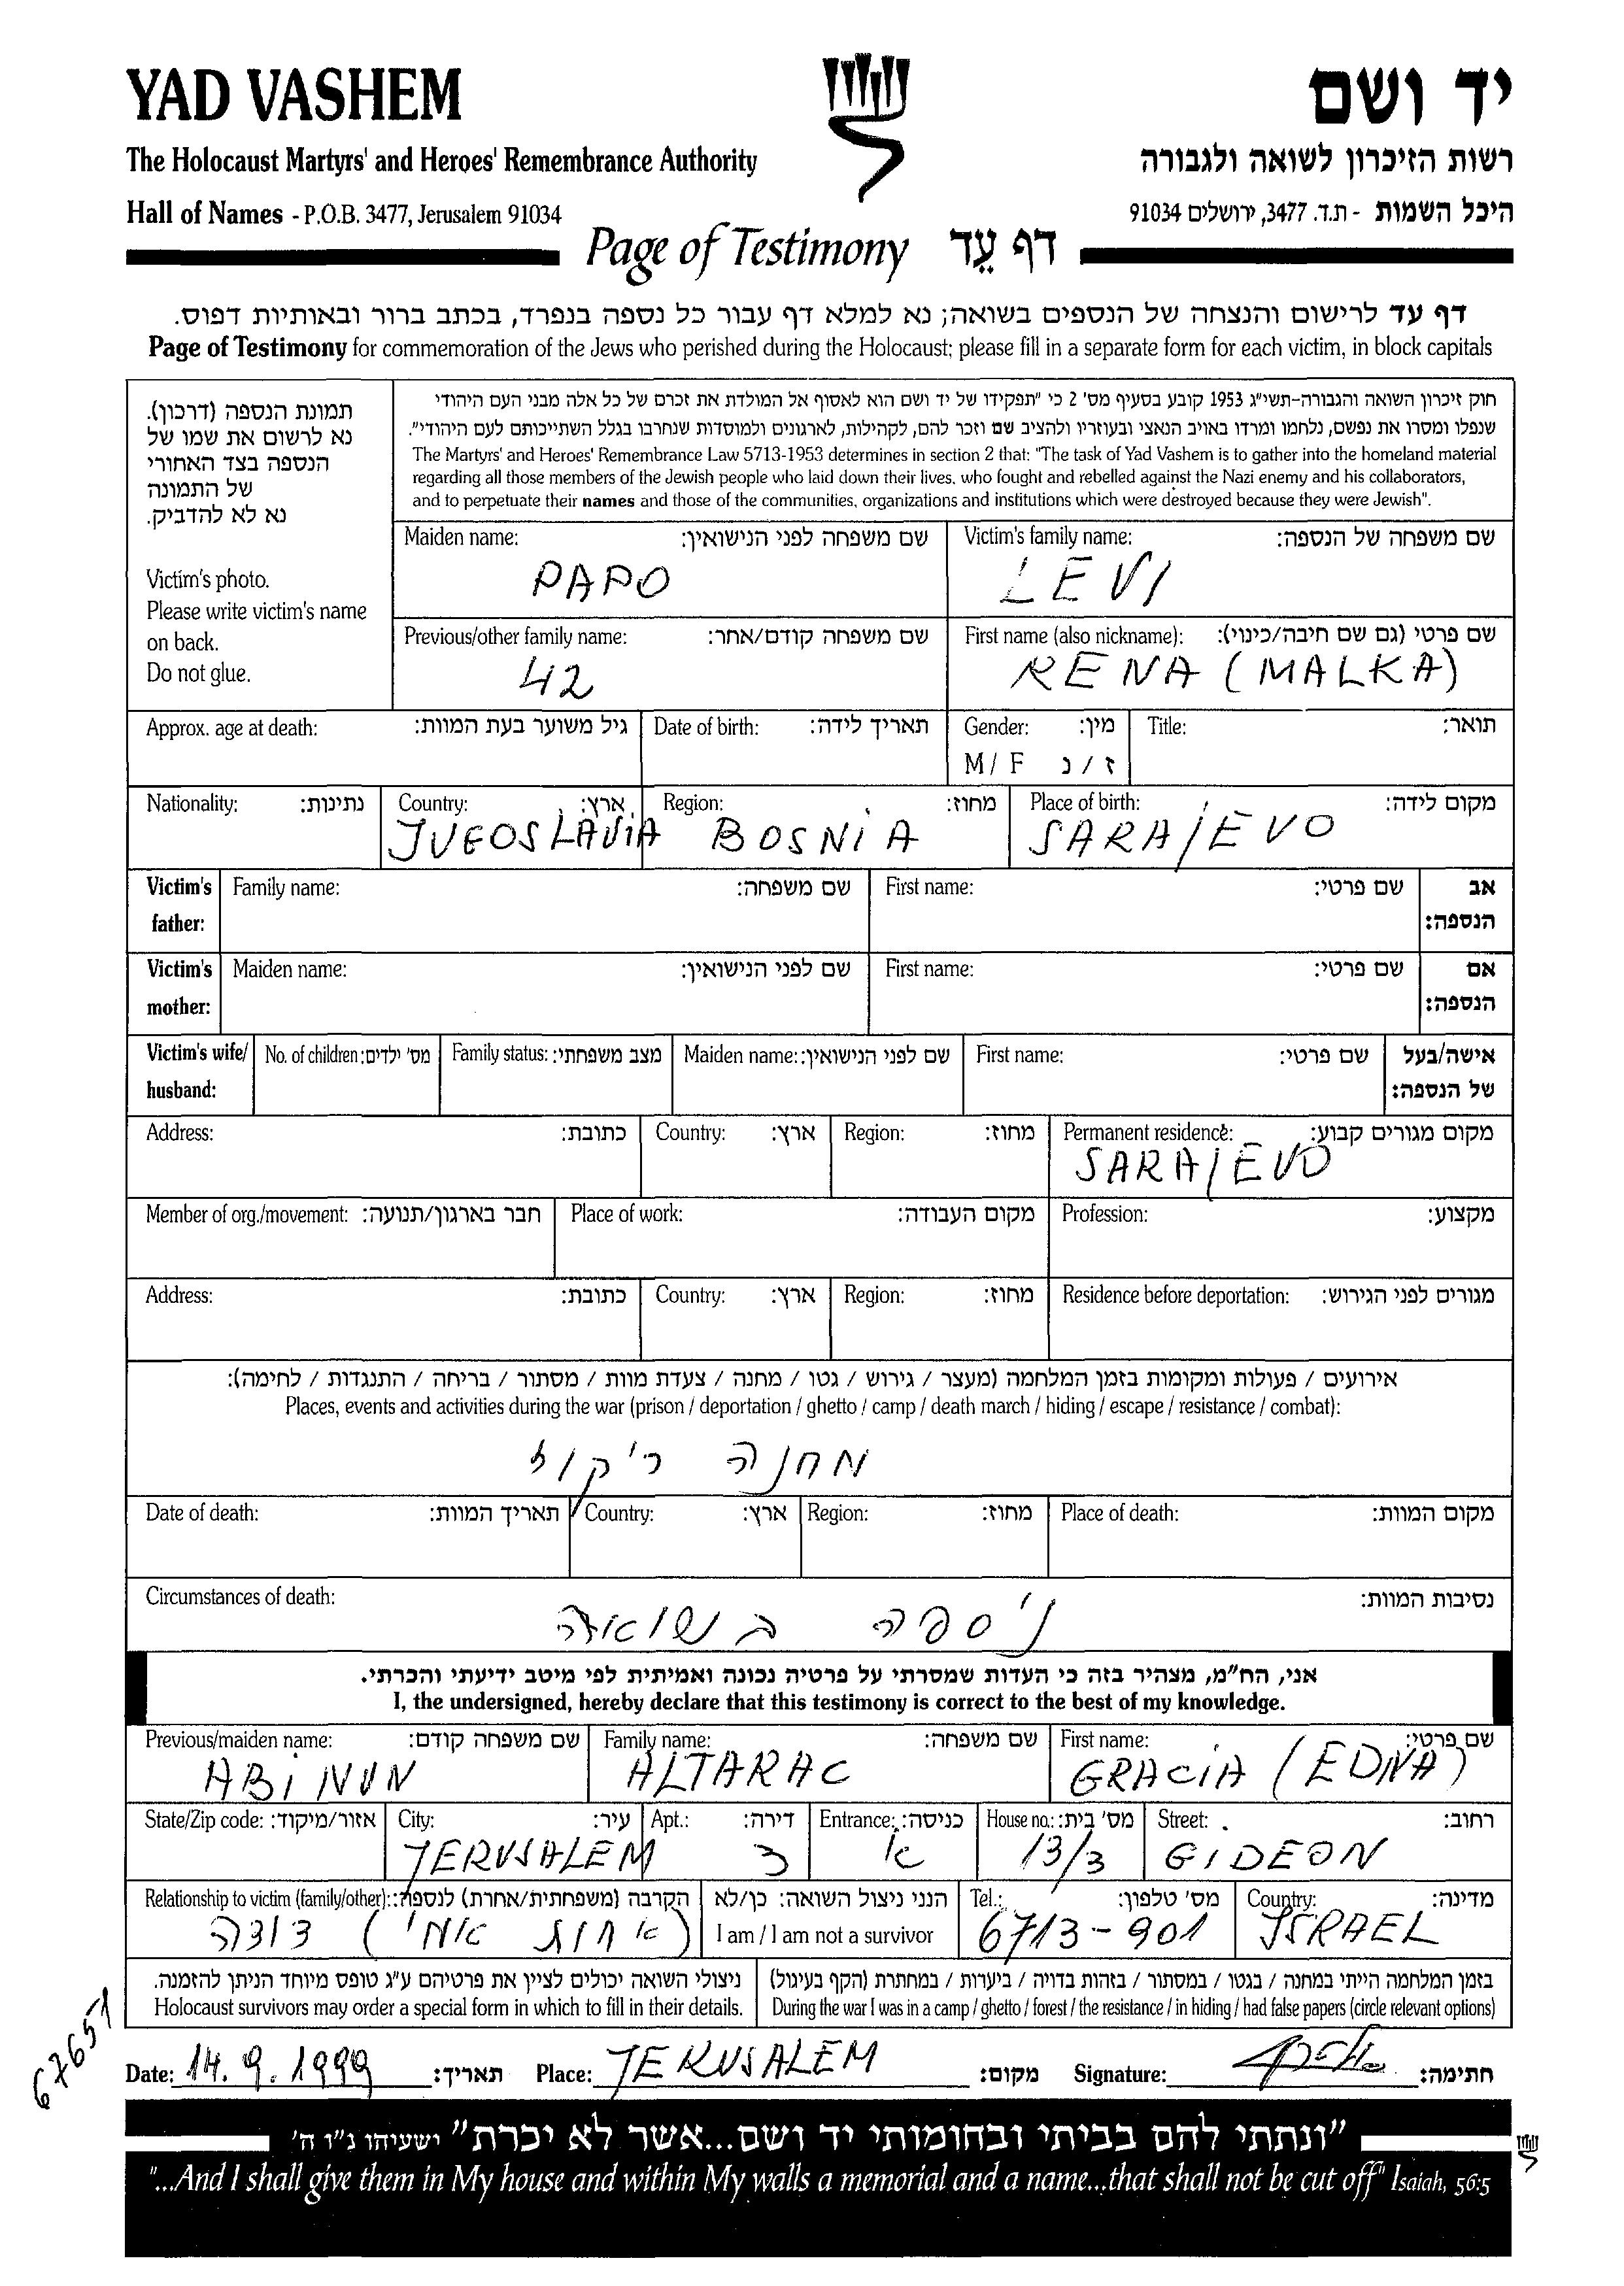 YAD VASHEM
יד ושם
The Holocaust Martyrs' and Heroes' Remembrance Authority
רשות הזיכרון לשואה ולגבורה
Hall of Names - P.O.B. 3477, Jerusalem 91034
היכל השמות - ת.ד. 3477, ירושלים 91034
Page of Testimony דף עֵד
דף עד לרישום והנצחה של הנספים בשואה; נא למלא דף עבור כל נספה בנפרד, בכתב ברור ובאותיות דפוס.
Page of Testimony for commemoration of the Jews who perished during the Holocaust; please fill in a separate form for each victim, in block capitals
תמונת הנספה (דרכון).
נא לרשום את שמו של
הנספה בצד האחורי
של התמונה
נא לא להדביק.
Victim's photo.
Please write victim's name
on back.
Do not glue.
חוק זיכרון השואה והגבורה-תשי"ג 1953 קובע בסעיף מס' 2 כי "תפקידו של יד ושם הוא לאסוף אל המולדת את זכרם של כל אלה מבני העם היהודי
שנפלו ומסרו את נפשם, נלחמו ומרדו באויב הנאצי ובעוזריו ולהציב שם וזכר להם, לקהילות, לארגונים ולמוסדות שנחרבו בגלל השתייכותם לעם היהודי".
The Martyrs' and Heroes' Remembrance Law 5713-1953 determines in section 2 that: "The task of Yad Vashem is to gather into the homeland material
regarding all those members of the Jewish people who laid down their lives, who fought and rebelled against the Nazi enemy and his collaborators,
and to perpetuate their names and those of the communities, organizations and institutions which were destroyed because they were Jewish".
Maiden name: שם משפחה לפני הנישואין:
PAPO
Victim's family name: שם משפחה של הנספה:
LEVI
Previous/other family name: שם משפחה קודם/אחר:
42
First name (also nickname): שם פרטי (גם שם חיבה/כינוי):
RENA (MALKA)
Approx. age at death: גיל משוער בעת המוות:
Date of birth: תאריך לידה:
Gender: מין:
M / F ז / נ
Title: תואר:
Nationality: נתינות:
Country: ארץ:
JUGOSLAVIA
Region: מחוז:
BOSNIA
Place of birth: מקום לידה:
SARAJEVO
Victim's father: Family name: שם משפחה: First name: שם פרטי: אב הנספה:
Victim's mother: Maiden name: שם לפני הנישואין: First name: שם פרטי: אם הנספה:
Victim's wife/ husband: No. of children: מס' ילדים: Family status: מצב משפחתי: Maiden name: שם לפני הנישואין: First name: שם פרטי: אישה/בעל של הנספה:
Address: כתובת: Country: ארץ: Region: מחוז: Permanent residence: מקום מגורים קבוע:
SARAJEVO
Member of org./movement: חבר בארגון/תנועה: Place of work: מקום העבודה: Profession: מקצוע:
Address: כתובת: Country: ארץ: Region: מחוז: Residence before deportation: מגורים לפני הגירוש:
אירועים / פעולות ומקומות בזמן המלחמה (מעצר / גירוש / גטו / מחנה / צעדת מוות / מסתור / בריחה / התנגדות / לחימה):
Places, events and activities during the war (prison / deportation / ghetto / camp / death march / hiding / escape / resistance / combat):
מחנה ריכוז
Date of death: תאריך המוות: Country: ארץ: Region: מחוז: Place of death: מקום המוות:
Circumstances of death: נסיבות המוות:
ניספה בשואה
אני, הח"מ, מצהיר בזה כי העדות שמסרתי על פרטיה נכונה ואמיתית לפי מיטב ידיעתי והכרתי.
I, the undersigned, hereby declare that this testimony is correct to the best of my knowledge.
Previous/maiden name: שם משפחה קודם:
ABINUN
Family name: שם משפחה:
ALTARAC
First name: שם פרטי:
GRACIA (EDNA)
State/Zip code: אזור/מיקוד: City: עיר: Apt.: דירה: Entrance: כניסה: House no.: מס' בית: Street: רחוב:
JERUSALEM 3 א 13/3 GIDEON
Relationship to victim (family/other): הקרבה (משפחתית/אחרת) לנספה:
דודה (אחות אמי)
הנני ניצול השואה: כן/לא
I am / I am not a survivor
Tel.: מס' טלפון:
6713-901
Country: מדינה:
ISRAEL
ניצולי השואה יכולים לציין את פרטיהם ע"ג טופס מיוחד הניתן להזמנה.
Holocaust survivors may order a special form in which to fill in their details.
בזמן המלחמה הייתי במחנה / בגטו / במסתור / בזהות בדויה / ביערות / במחתרת (הקף בעיגול)
During the war I was in a camp / ghetto / forest / the resistance / in hiding / had false papers (circle relevant options)
67651
Date: 14.9.1999 תאריך: Place: JERUSALEM מקום: Signature: חתימה:
"ונתתי להם בביתי ובחומותי יד ושם...אשר לא יכרת" ישעיהו נ"ו ה'
"...And I shall give them in My house and within My walls a memorial and a name...that shall not be cut off" Isaiah, 56:5